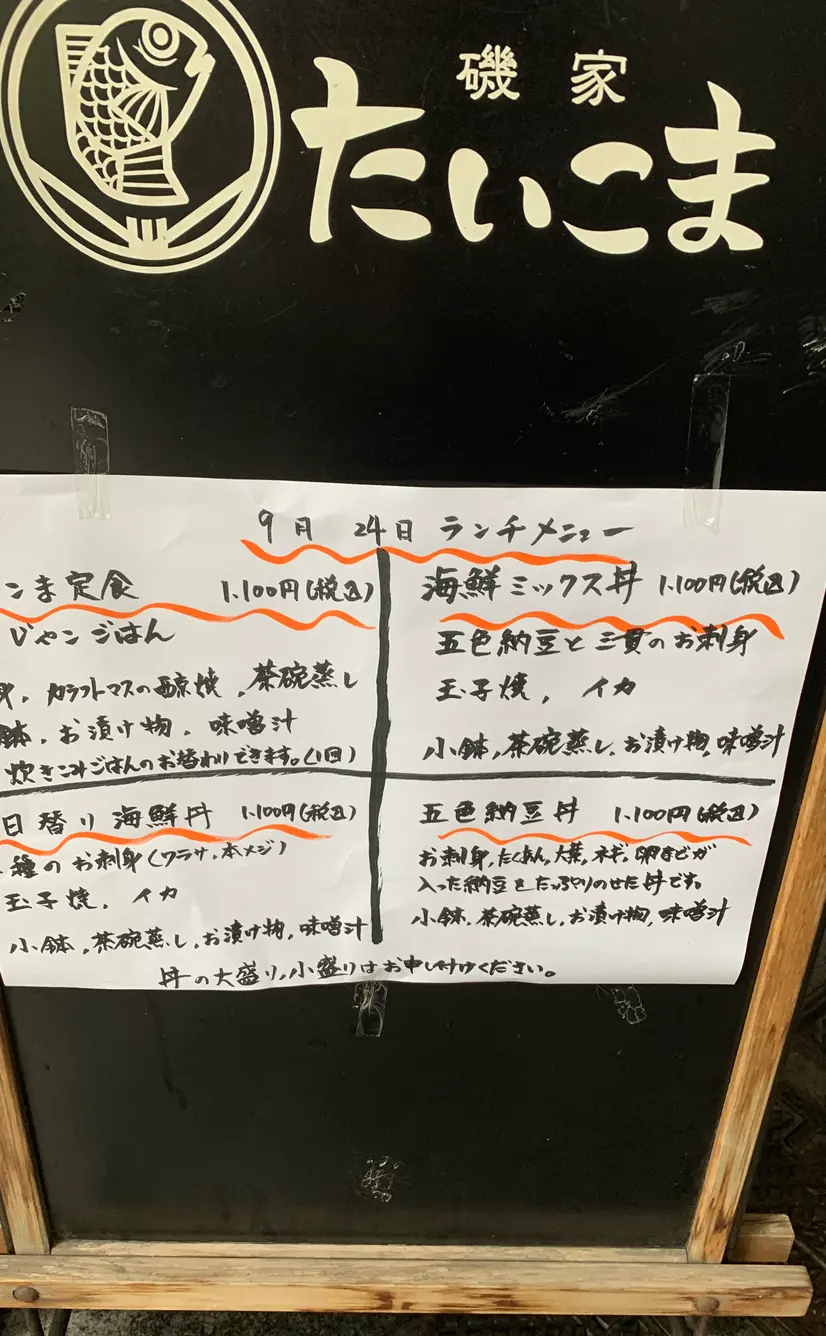 磯家
たいこま
9月 24日 ランチメニュー
こま定食 1,100円(税込)
じゃンごはん
身、カラフトマスの西京焼、茶碗蒸し
鉢、お漬け物、味噌汁
炊きこみごはんのお替わりできます。(1回)
海鮮ミックス丼 1,100円(税込)
五色納豆と三貫のお刺身
玉子焼、イカ
小鉢、茶碗蒸し、お漬け物、味噌汁
日替り海鮮丼 1,100円(税込)
種のお刺身(ワラサ、本メジ)
玉子焼、イカ
小鉢、茶碗蒸し、お漬け物、味噌汁
五色納豆丼 1,100円(税込)
お刺身、たくあん、大葉、ネギ、卵などが
入った納豆をたっぷりのせた丼です。
小鉢、茶碗蒸し、お漬け物、味噌汁
丼の大盛り、小盛りはお申し付けください。